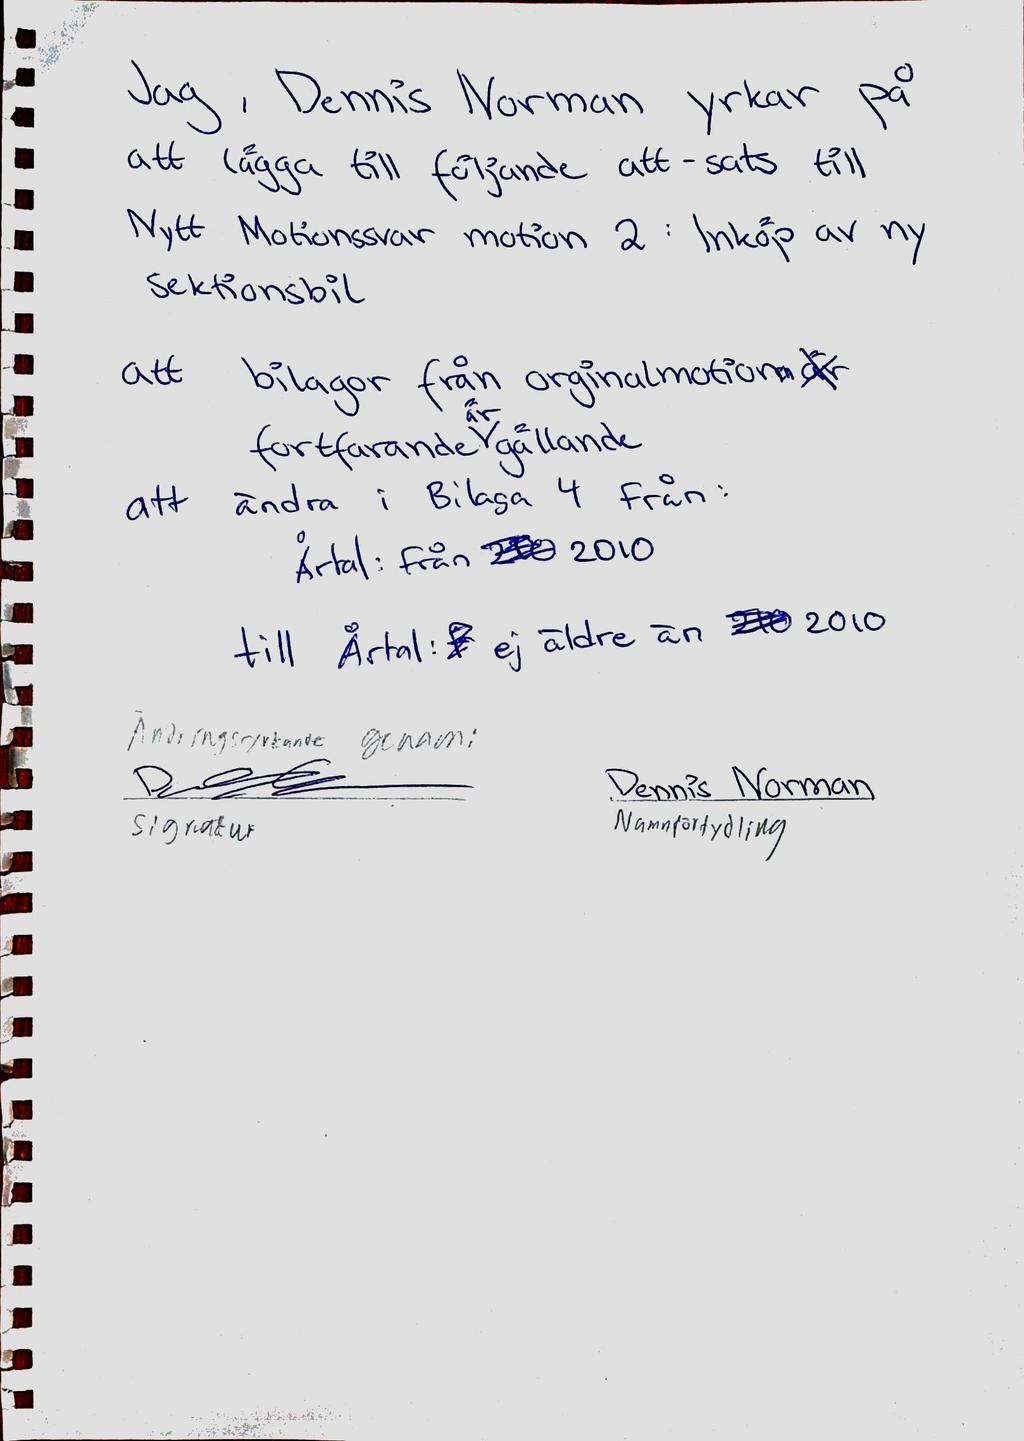 Jag, Dennis Norman yrkar på
att lägga till följande att-sats till
Nytt Motionssvar motion 2: Inköp av ny
sektionsbil
att bilagor från orginalmotion
är
fortfarande gällande
att ändra i Bilaga 4 från:
Årtal: från 2010
till Årtal: ej äldre än 2010
Ändringsyrkande genom:
Signatur
Dennis Norman
Namnförtydling